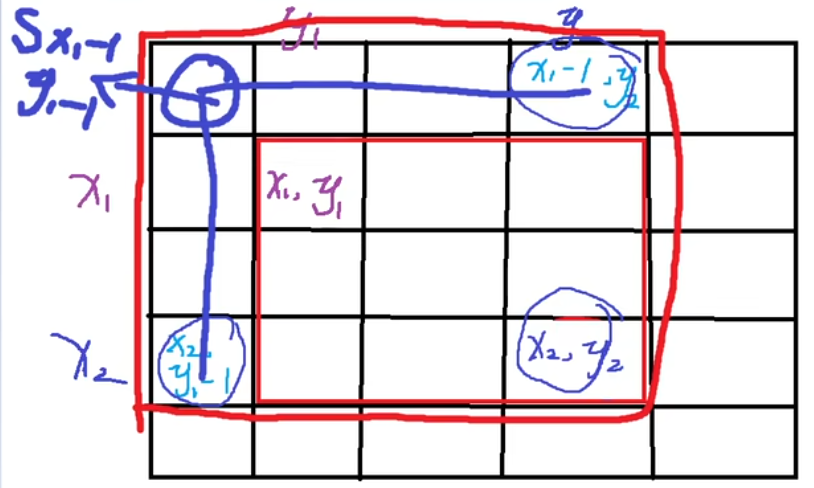 Sx₁-1
y₁-1
y₁
y
x₁-1, y₂
x₁
x₁, y₁
x₂
x₂,
y₁-1
x₂, y₂